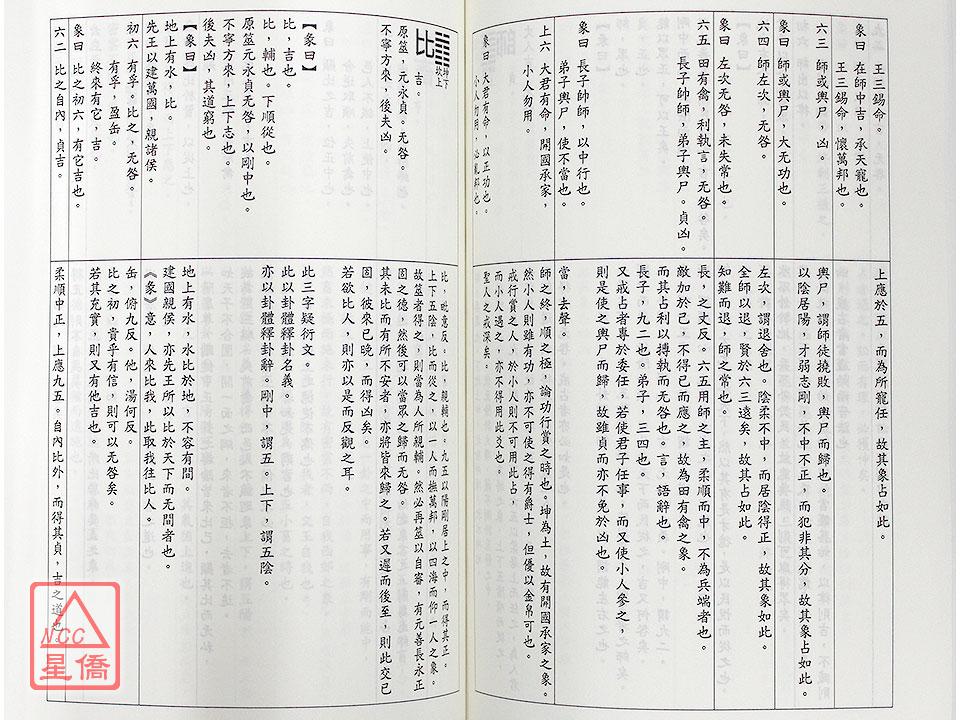 王三錫命。
象曰　在師中吉，承天寵也。
王三錫命，懷萬邦也。
六三　師或輿尸，凶。
象曰　師或輿尸，大无功也。
六四　師左次，无咎。
象曰　左次无咎，未失常也。
六五　田有禽，利執言，无咎。
長子帥師，弟子輿尸。貞凶。
象曰　長子帥師，以中行也。
弟子輿尸，使不當也。
上六　大君有命，開國承家，
小人勿用。
象曰　大君有命，以正功也。
小人勿用，必亂邦也。
上應於五，而為所寵任，故其象占如此。
輿尸，謂師徒撓敗，輿尸而歸也。
以陰居陽，才弱志剛，不中不正，而犯非其分，故其象占如此。
左次，謂退舍也。陰柔不中，而居陰得正，故其象如此。
全師以退，賢於六三遠矣，故其占如此。
知難而退，師之常也。
長，之丈反。六五用師之主，柔順而中，不為兵端者也。
敵加於己，不得已而應之，故為田有禽之象。
而其占利以搏執而无咎也。言，語辭也。
長子，九二也。弟子，三四也。
又戒占者專於委任，若使君子任事，而又使小人參之，
則是使之輿尸而歸，故雖貞而亦不免於凶也。
當，去聲。
師之終，順之極，論功行賞之時也。坤為土，故有開國承家之象。
然小人則雖有功，亦不可使之得有爵土，但優以金帛可也。
戒行賞之人，於小人則不可用此占，
而小人遇之，亦不得用此爻也。
聖人之戒深矣。
比 坤下
坎上
吉。
原筮，元永貞。无咎。
不寧方來，後夫凶。
【彖曰】
比，吉也。
比，輔也。下順從也。
原筮元永貞无咎，以剛中也。
不寧方來，上下志也。
後夫凶，其道窮也。
【象曰】
地上有水，比。
先王以建萬國，親諸侯。
初六　有孚。比之，无咎。
有孚，盈缶。
終來有它，吉。
象曰　比之初六，有它吉也。
六二　比之自內，貞吉。
比，毗意反。比，親輔也。九五以陽剛居上之中，而得其正。
上下五陰，比而從之，以一人而撫萬邦，以四海而仰一人之象。
故筮者得之，則當為人所親輔。然必再筮以自審，有元善長永正
固之德，然後可以當眾之歸而无咎。
其未比而有所不安者，亦將皆來歸之。若又遲而後至，則此交已
固，彼來已晚，而得凶矣。
若欲比人，則亦以是而反觀之耳。
此三字疑衍文。
此以卦體釋卦名義。
亦以卦體釋卦辭。剛中，謂五。上下，謂五陰。
地上有水，水比於地，不容有間。
建國親侯，亦先王所以比於天下而无間者也。
《彖》意，人來比我，此取我往比人。
缶，俯九反。他，湯何反。
比之初，貴乎有信，則可以无咎矣。
若其充實，則又有他吉也。
柔順中正，上應九五。自內比外，而得其貞，吉之道也。
NCC
星僑